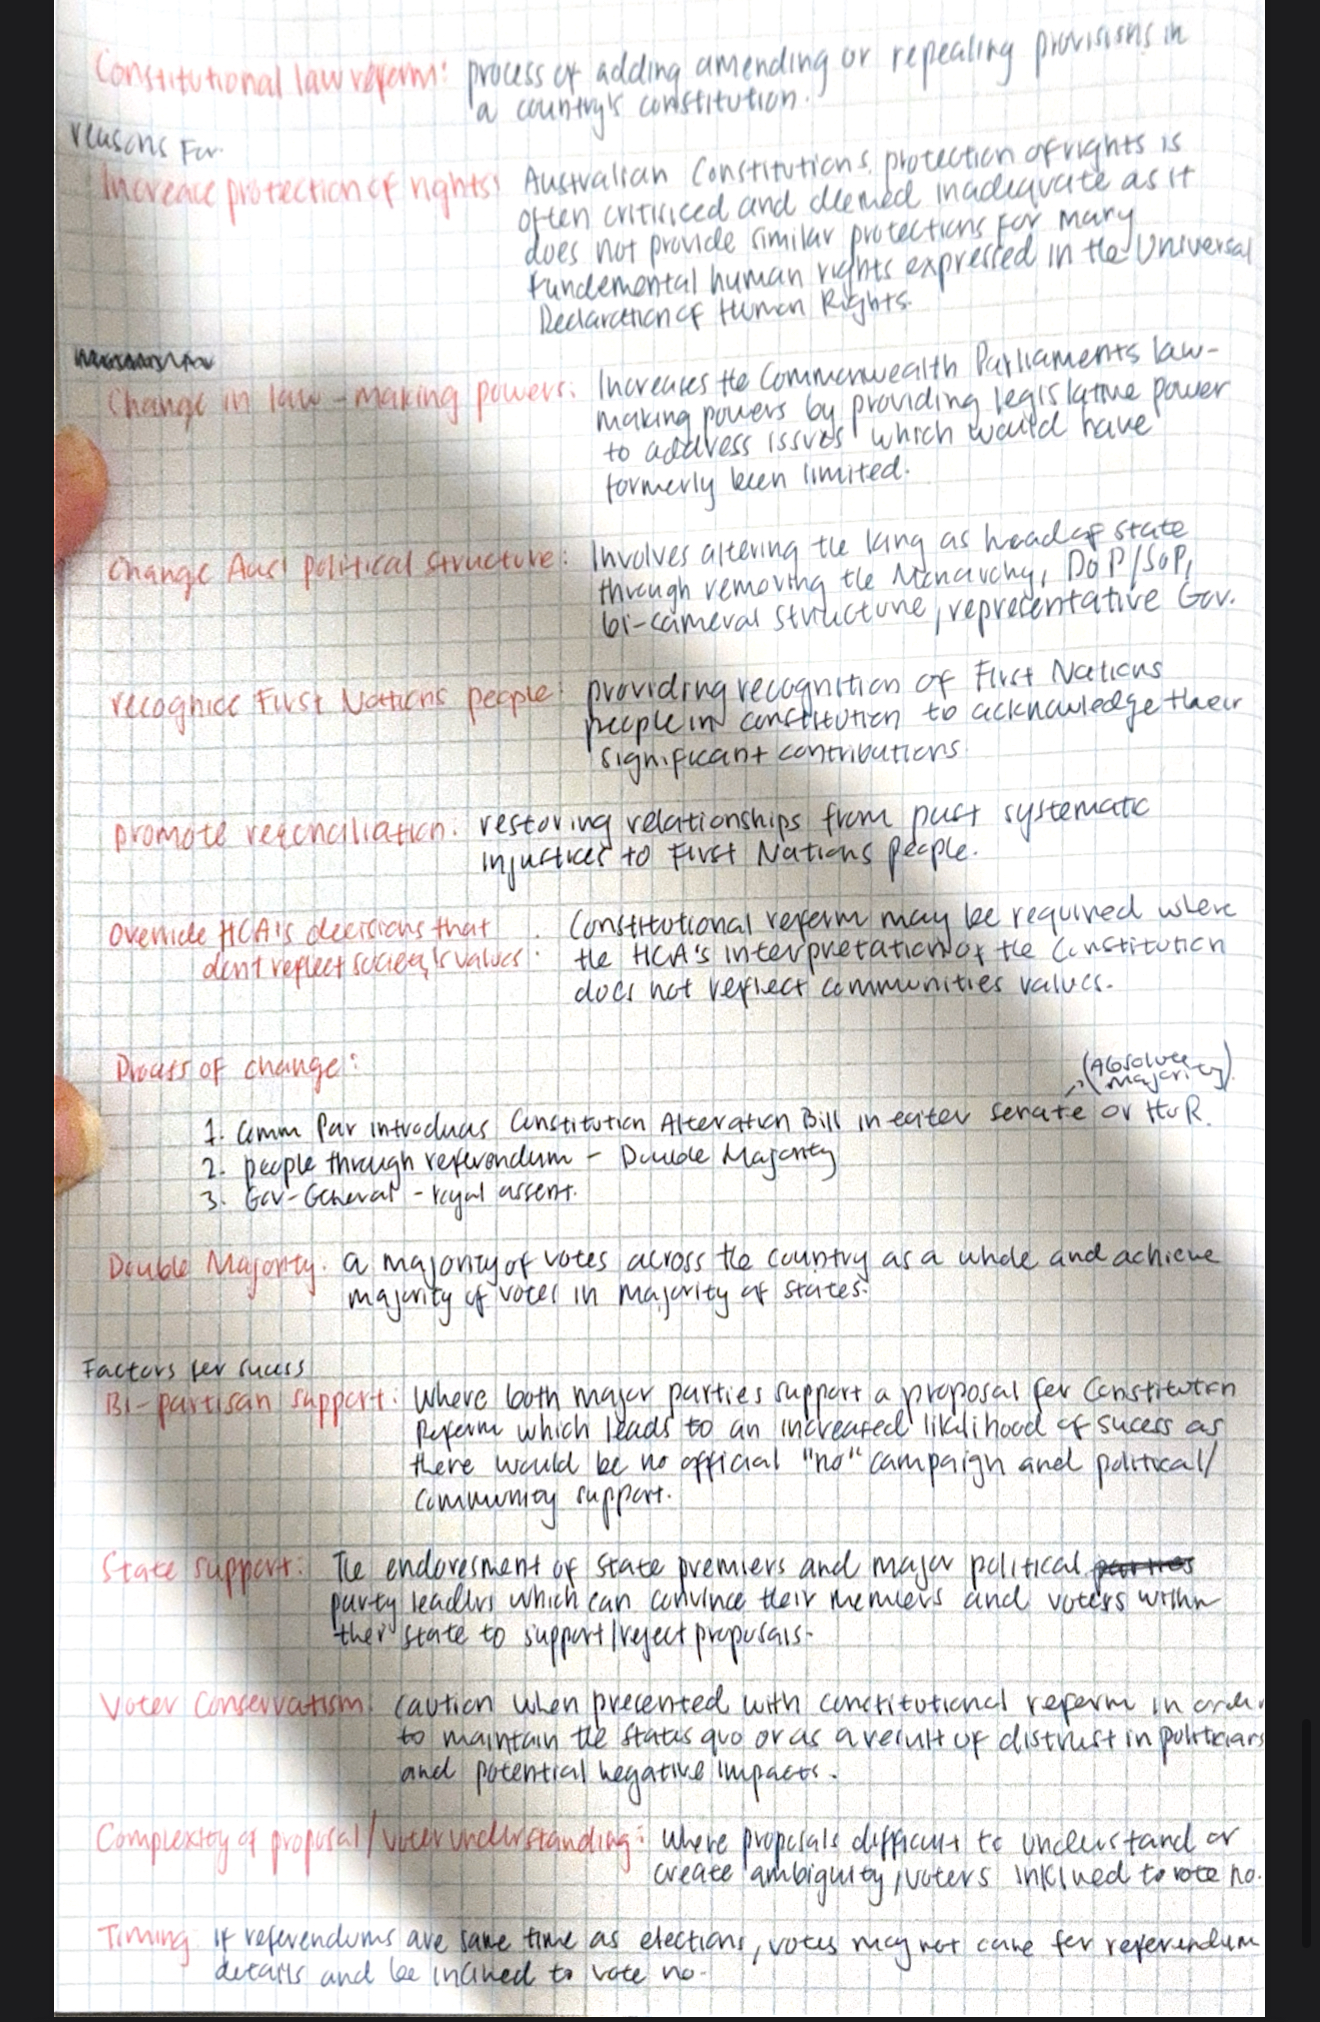 Constitutional law reform: process of adding amending or repealing provisions in
a country's constitution.
reasons For
Increase protection of rights: Australian Constitutions protection of rights is
often criticiced and deemed inadequate as it
does not provide similar protections for many
fundemental human rights expressed in the Universal
Declaration of Human Rights.
Change in law-making powers: Increases the Commonwealth Parliaments law-
making powers by providing legislative power
to address issues which would have
formerly been limited.
Change Aus' political structure: Involves altering the king as head of state
through removing the Monarchy, DoP/SoP,
bi-cameral structure, representative Gov.
recognise First Nations people: providing recognition of First Nations
people in constitution to acknowledge their
significant contributions.
promote reconciliation: restoring relationships from past systematic
injustices to First Nations people.
Override HCA's decisions that : Constitutional reform may be required where
dont reflect society's values: the HCA's interpretation of the Constitution
does not reflect communities values.
Process of change:
(Absolute
Majority).
1. Comm Par introduces Constitution Alteration Bill in either senate or HoR.
2. people through referendum - Double Majority
3. Gov-General - royal assent.
Double Majority: a majority of votes across the country as a whole and achieve
majority of votes in majority of states.
Factors for sucess
Bi-partisan support: Where both major parties support a proposal for Constitution
Reform which leads to an increased likelihood of sucess as
there would be no official "no" campaign and political/
community support.
State support: The endoresment of state premiers and major political parties
party leaders which can convince their members and voters within
their state to support/reject proposals.
Voter Conservatism: caution when presented with constitutional reform in order
to maintain the status quo or as a result of distrust in politicians
and potential negative impacts.
Complexity of proposal/voter understanding: Where proposals difficult to understand or
create ambiguity, voters inclined to vote no.
Timing: if referendums are same time as elections, votes may not care for referendum
details and be inclined to vote no.